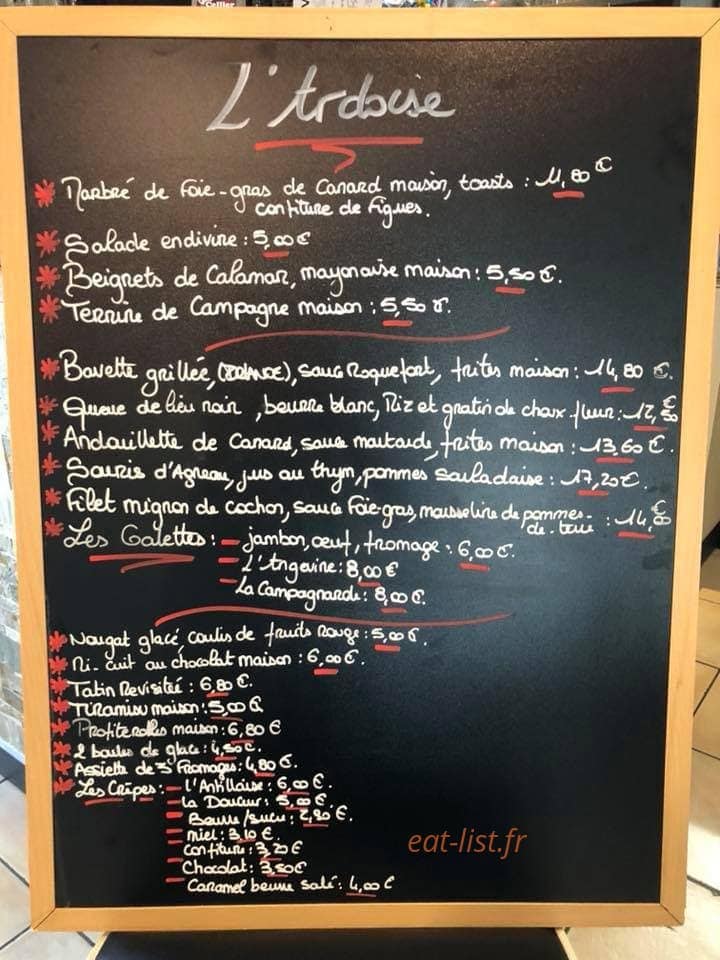 L'Ardoise
Marbré de Foie-gras de Canard maison, toasts : 11,80 €
confiture de Figues.
Salade endivine : 5,00 €
Beignets de Calamar, mayonaise maison : 5,50 €.
Terrine de Campagne maison : 5,50 €.
Bavette grillée, (FRANCE), sauce Roquefort, frites maison : 14,80 €.
Queue de lieu noir, beurre blanc, Riz et gratin de choux-fleur : 12,50 €
Andouillette de Canard, sauce moutarde, frites maison : 13,60 €.
Souris d'Agneau, jus au thym, pommes sarladaise : 17,20 €.
Filet mignon de cochon, sauce Foie-gras, mousseline de pommes-
de-terre : 14,00 €
Les Galettes : - jambon, œuf, fromage : 6,00 €.
- L'Angevine : 8,00 €
- La Campagnarde : 8,00 €.
Nougat glacé coulis de fruits rouge : 5,00 €.
Mi-cuit au chocolat maison : 6,00 €.
Tatin Revisitée : 6,80 €.
Tiramisu maison : 5,00 €
Profiterolles maison : 6,80 €
2 boules de glace : 4,50 €.
Assiette de 3 Fromages : 4,80 €.
Les Crêpes : - L'Antillaise : 6,00 €
- La Douceur : 5,00 €.
- Beurre/sucre : 2,80 €.
- miel : 3,10 €.
- confiture : 3,20 €
- Chocolat : 3,50 €
- Caramel beurre salé : 4,00 €
eat-list.fr